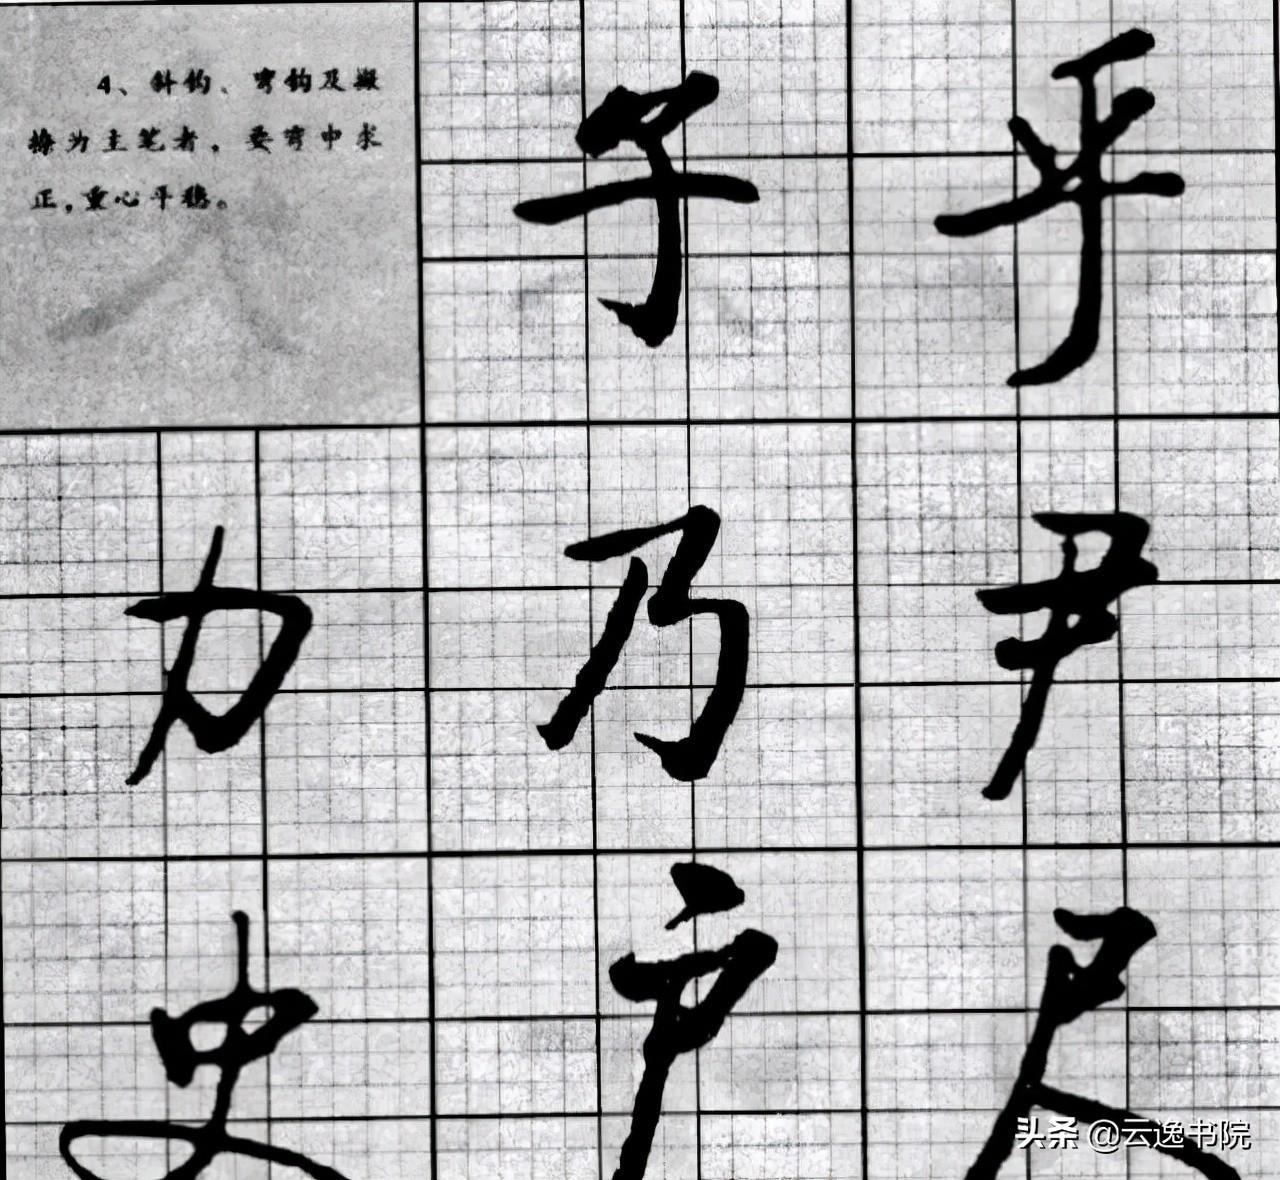 4、斜钩、弯钩及撇
捺为主笔者，要弯中求
正，重心平稳。
子 乎
力 乃 尹
史 户 尺
头条 @云逸书院